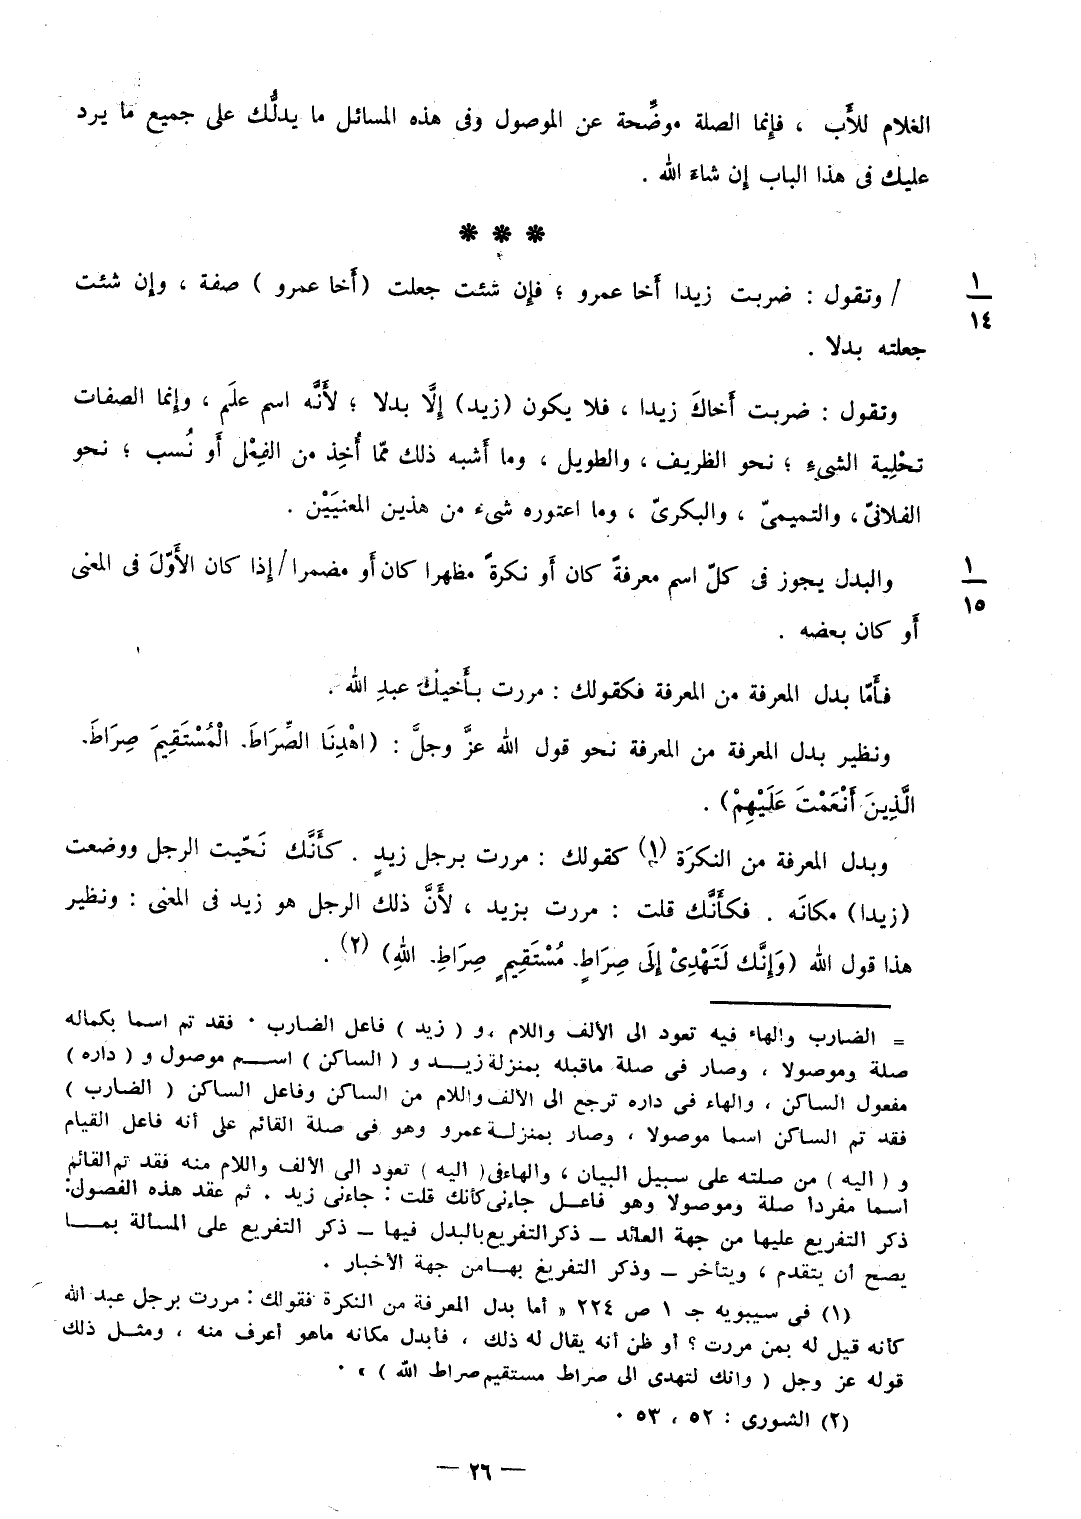 الغلام للأَب ، فإنما الصلة موضِّحة عن الموصول وفى هذه المسائل ما يدلُّك على جميع ما يرد
عليك فى هذا الباب إن شاءَ الله .
* * *
/ وتقول : ضربت زيدا أَخا عمرو ؛ فإن شئت جعلت (أَخا عمرو ) صفة ، وإن شئت
١
١٤
جعلته بدلا .
وتقول : ضربت أَخاكَ زيدا ، فلا يكون (زيد) إلَّا بدلا ؛ لأَنَّه اسم علَم ، وإنما الصفات
تحْلِية الشىءِ ؛ نحو الظريف ، والطويل ، وما أَشبه ذلك ممّا أُخِذ من الفِعْل أَو نُسب ؛ نحو
الفلانىّ ، والتميمىّ ، والبكرىّ ، وما اعتوره شىء من هذين المعنيَيْن .
والبدل يجوز فى كلّ اسم معرفةً كان أَو نكرةً مظهرا كان أَو مضمرا/ إذا كان الأَوّلَ فى المعنى
١
١٥
أَو كان بعضه .
فأَمّا بدل المعرفة من المعرفة فكقولك : مررت بأَخيكَ عبدِ الله .
ونظير بدل المعرفة من المعرفة نحو قول الله عزَّ وجلَّ : (اهْدِنَا الصِّرَاطَ. الْمُسْتَقِيمَ صِرَاطَ.
الَّذِينَ أَنْعَمْتَ عَلَيْهِمْ) .
وبدل المعرفة من النكرَة (١) كقولك : مررت برجل زيدٍ . كأَنَّك نَحّيت الرجل ووضعت
(زيدا) مكانَه . فكأَنَّك قلت : مررت بزيد ، لأَنَّ ذلك الرجل هو زيد فى المعنى : ونظير
هذا قول الله (وَإنَّك لَتَهْدِىْ إلَى صِرَاطٍ. مُسْتَقِيمٍ صِرَاطِ. اللهِ) (٢) .
= الضارب والهاء فيه تعود الى الألف واللام ،و ( زيد ) فاعل الضارب ٠ فقد تم اسما بكماله
صلة وموصولا ، وصار فى صلة ماقبله بمنزلة زيـد و ( الساكن ) اسـم موصول و ( داره )
مفعول الساكن ، والهاء فى داره ترجع الى الألف واللام من الساكن وفاعل الساكن ( الضارب )
فقد تم الساكن اسما موصولا ، وصار بمنزلـة عمرو وهو فى صلة القائم على أنه فاعل القيام
و ( اليه ) من صلته على سبيل البيان ، والهاءفى( اليه ) تعود الى الألف واللام منه فقد تم القائم
اسما مفردا صلة وموصولا وهو فاعـل جاءنى كأنك قلت : جاءنى زيد . ثم عقد هذه الفصول:
ذكر التفريع عليها من جهة العائد ــ ذكر التفريع بالبدل فيها ــ ذكر التفريع على المسألة بمـا
يصح أن يتقدم ، ويتأخر ــ وذكر التفريع بهـا من جهة الأخبار .
(١) فى سيبويه جـ ١ ص ٢٢٤ « أما بدل المعرفة من النكرة فقولك : مررت برجل عبد الله
كأنه قيل له بمن مررت ؟ أو ظن أنه يقال له ذلك ، فأبدل مكانه ماهو أعرف منه ، ومثـل ذلك
قوله عز وجل ( وانك لتهدى الى صراط مستقيم صراط الله ) » ٠
(٢) الشورى : ٥٢ ، ٥٣ ٠
— ٢٦ —